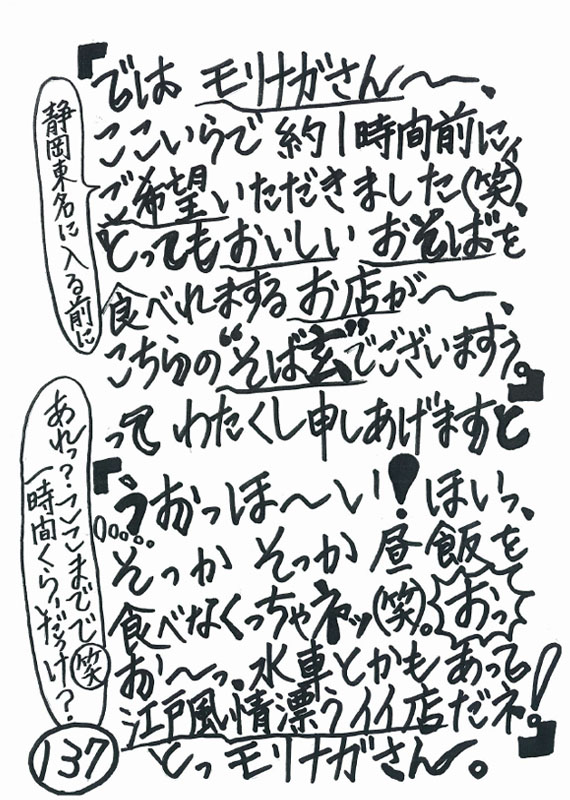 『では モリナガさん〜、
ここいらで 約1時間前に、
ご希望いただきました(笑)、
とってもおいしい おそばを
食べれまする お店が〜、
こちらの“そば玄”でございますぅ。』
って わたくし申しあげますと
『うおっほ〜い!ほいっ、
そっか そっか 昼飯を
食べなくっちゃネッ(笑)。おっ
お〜っ、水車とかも あって
江戸風情漂うイイ店だネ!。』
とっ モリナガさん〜。
静岡東名に入る前に
あれっ?ここまでで(笑)
一時間くらいだっけ?
137